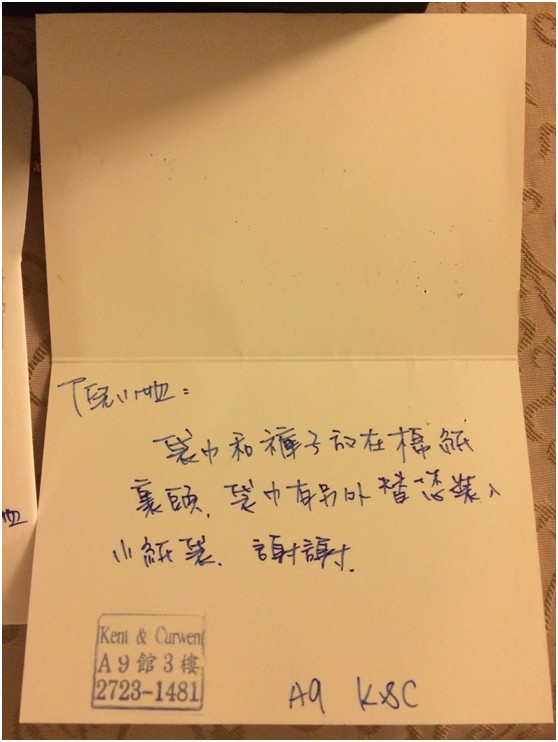 小姐：
袋巾和褲子放在棉紙
裏頭, 袋巾有另外替您裝入
小紙袋. 謝謝.
Kent & Curwen
A9館3樓
2723-1481
A9 K&C